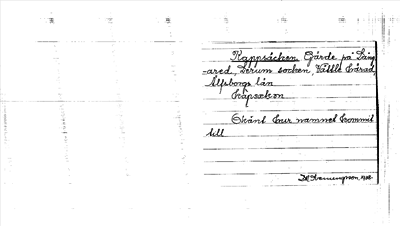 Kappsäcken, Gärde på Lång
-ared, Lerum socken, Vättle härad,
Älfsborgs län
käpsäken
Okänt hur namnet kommit
till